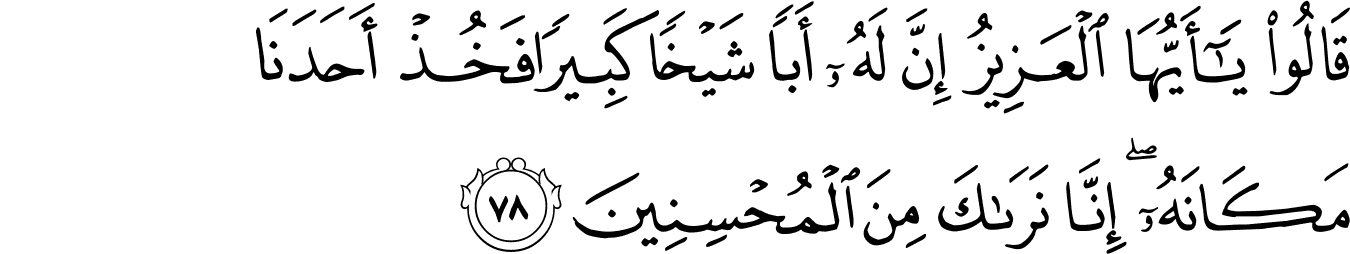 قَالُوا۟ يَـٰٓأَيُّهَا ٱلْعَزِيزُ إِنَّ لَهُۥٓ أَبًا شَيْخًا كَبِيرًا فَخُذْ أَحَدَنَا
مَكَانَهُۥٓ ۖ إِنَّا نَرَىٰكَ مِنَ ٱلْمُحْسِنِينَ ٧٨